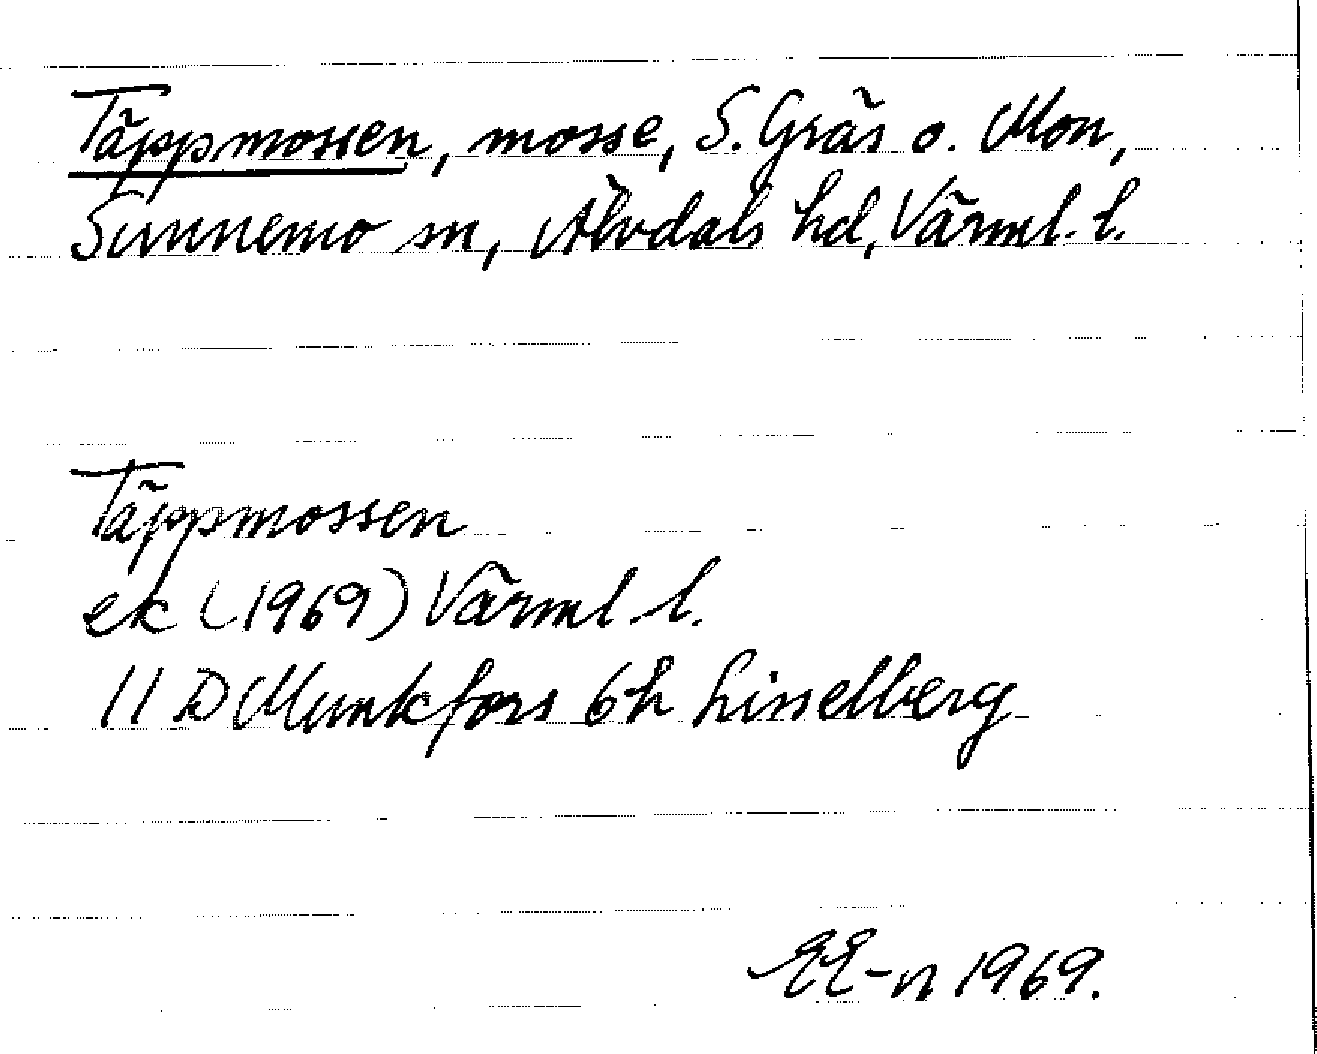 Täppmossen, mosse, S. Gräs o. Mon,
Sunnemo sn, Älvdals hd, Värml. l.
Täppmossen
ek (1969) Värml. l.
11 D Munkfors 6h Lisselberg
EE-n 1969.